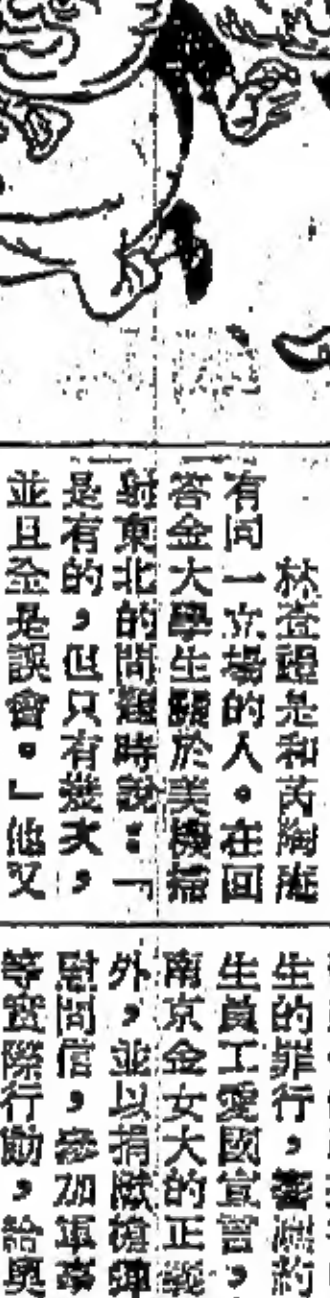 林查理是和芮陶庵
有同一立場的人。在回
答金大學生關於美機掃
射東北的問題時說：「
是有的，但只有幾次，
並且全是誤會。」他又
生的罪行，
生員工愛國宣言，
南京金女大的正義
外，並以捐獻槍彈
慰問信，參加軍事
等實際行動，給與